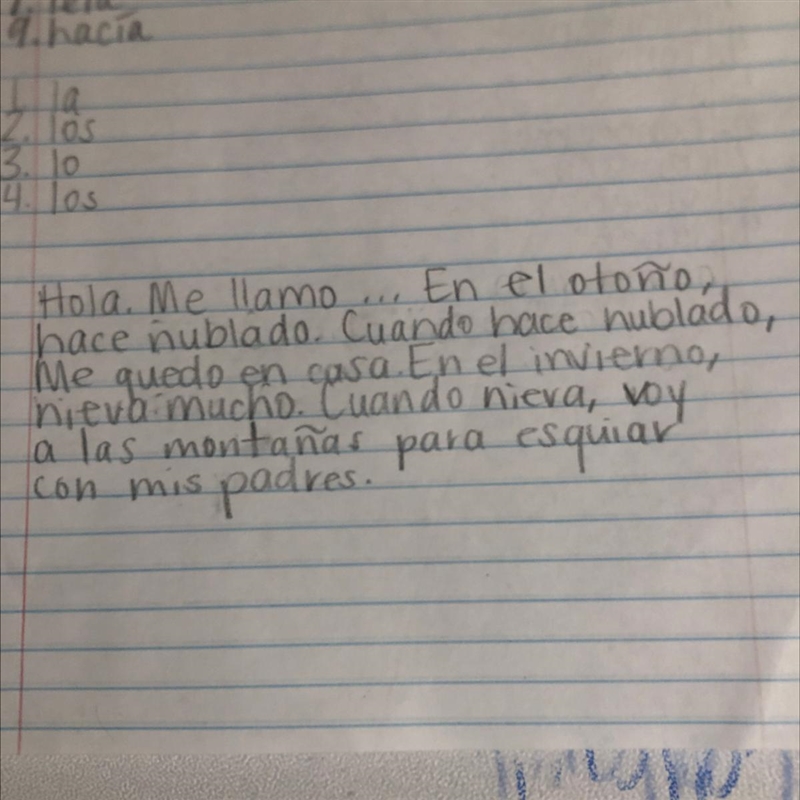 9. hacía
1. la
2. los
3. lo
4. los
Hola. Me llamo ... En el otoño,
hace nublado. Cuando hace nublado,
Me quedo en casa. En el invierno,
nieva mucho. Cuando nieva, voy
a las montañas para esquiar
con mis padres.